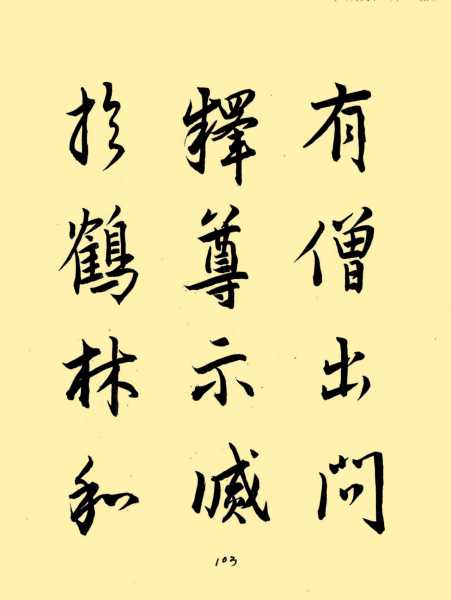 有僧出問
釋尊示滅
於鶴林和
103